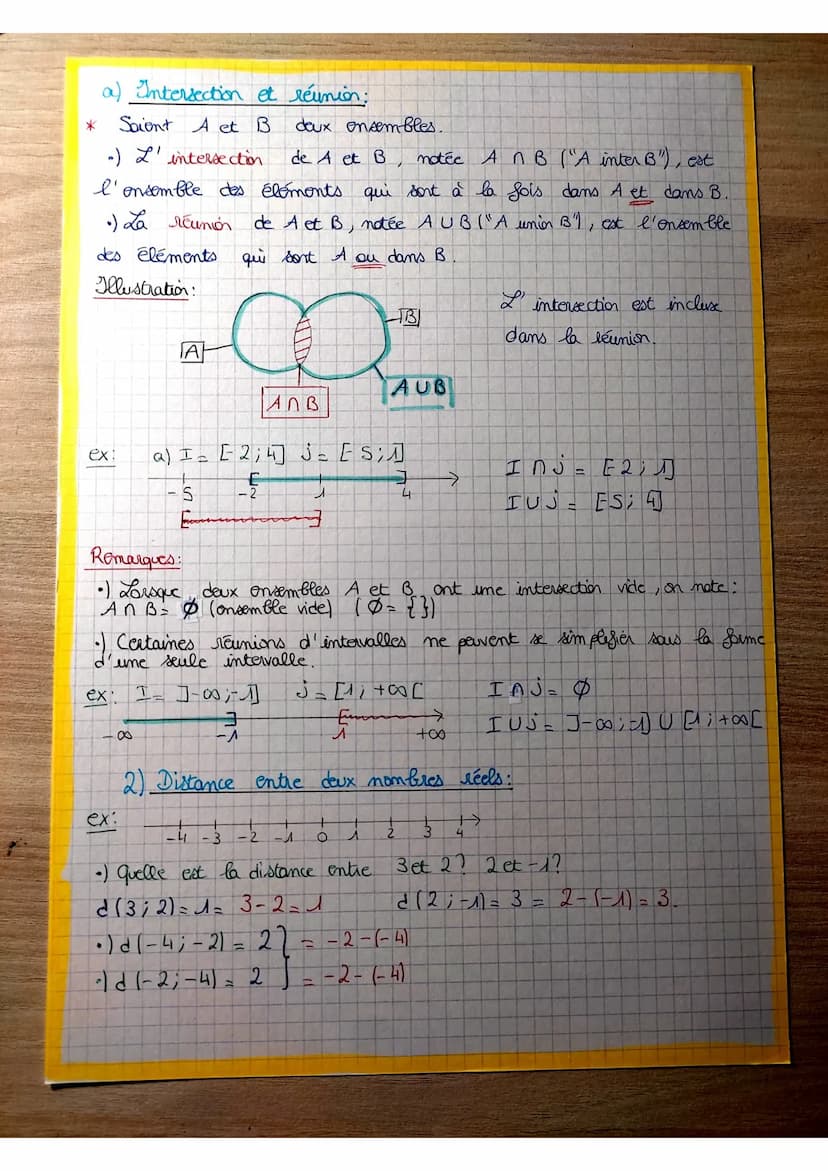 a) Intersection et réunion:
* Soient A et B deux ensembles.
•) L'intersection de A et B, notée A ∩ B ("A inter B"), est
l'ensemble des éléments qui sont à la fois dans A et dans B.
•) La réunion de A et B, notée A ∪ B ("A union B"), est l'ensemble
des éléments qui sont A ou dans B.
Illustration:
L'intersection est incluse
dans la réunion.
A
B
A ∩ B
A ∪ B
ex: a) I = [-2;4] j = [-5;1]
I ∩ j = [-2;1]
I ∪ j = [-5;4]
-5 -2 1 4
Remarques:
•) Lorsque deux ensembles A et B ont une intersection vide, on note:
A ∩ B = ∅ (ensemble vide) (∅ = {})
•) Certaines réunions d'intervalles ne peuvent se simplifier sous la forme
d'une seule intervalle.
ex: I = ]-∞;-1] j = [1;+∞[ I ∩ j = ∅
I ∪ j = ]-∞;-1] ∪ [1;+∞[
-∞ -1 1 +∞
2) Distance entre deux nombres réels:
ex:
-4 -3 -2 -1 0 1 2 3 4
•) Quelle est la distance entre 3 et 2? 2 et -1?
d(3;2) = 1 = 3-2 = 1 d(2;-1) = 3 = 2-(-1) = 3.
•) d(-4;-2) = 2 } = -2-(-4)
•) d(-2;-4) = 2 } = -2-(-4)